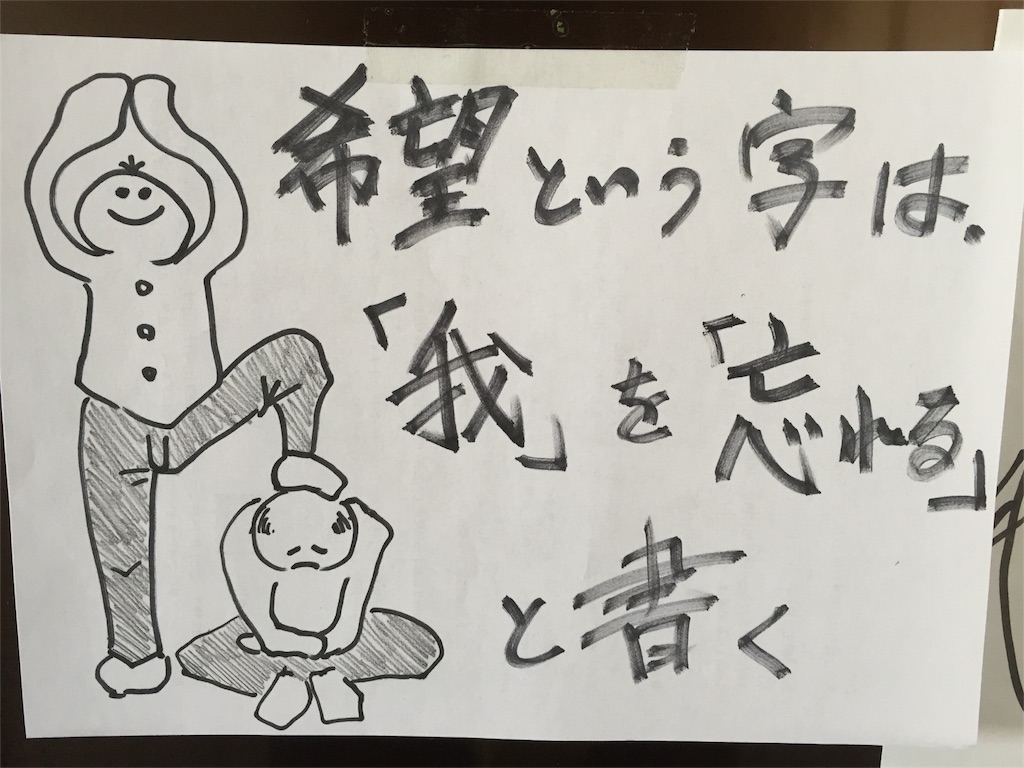 希望という字は、
「我」を「忘れる」
と書く